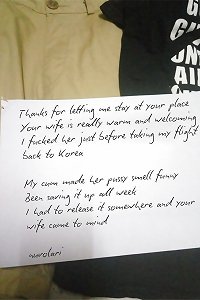 Thanks for letting me stay at your place
Your wife is really warm and welcoming
I fucked her just before taking my flight
back to Korea
My cum made her pussy smell funny
Been saving it up all week
I had to release it somewhere and your
wife came to mind